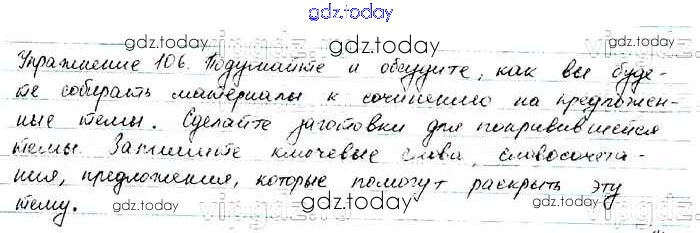 gdz.today
Упражнение 106. Подумайте и обсудите, как вы буде-
те собирать материалы к сочинению на предложен-
ные темы. Сделайте заготовки для понравившейся
темы. Запишите ключевые слова, словосочета-
ния, предложения, которые помогут раскрыть эту
тему.
gdz.today
gdz.today
gdz.today
gdz.today
gdz.today
gdz.today
gdz.today